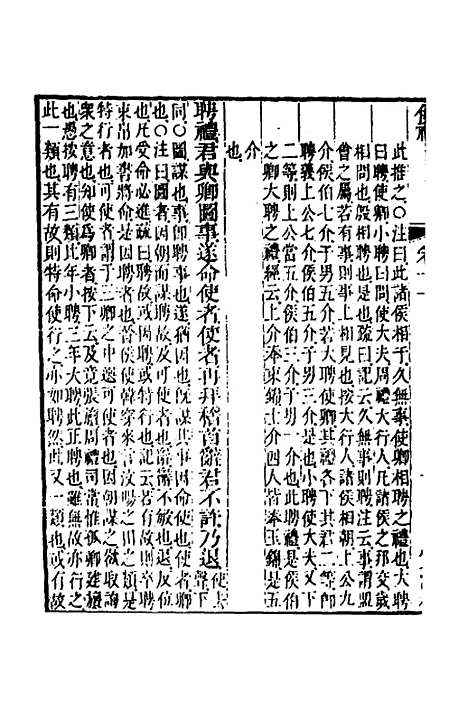 此推之○注曰此諸侯相于久無事使卿相聘之禮也大聘
曰聘使卿小聘曰問使大夫周禮大行人凡諸侯之邦交歲
相問也殷相聘也是也疏曰記云久無事則聘注云事謂盟
會之屬若有事則事上相見也按大行人諸侯相朝上公九
介侯伯七介子男五介若大聘使卿其禮各下其君二等即
聘義上公七介侯伯五介子男三介是也小聘使大夫又下
二等則上公當五介侯伯三介子男一介也此聘禮是侯伯
之卿大聘之禮經云上介奉束錦士介四人皆奉玉錦是五
介
也
聘禮君與卿圖事遂命使者使者再拜稽首辭君不許乃退 使上聲下
同○圖謀也事即聘事也遂猶因也既謀其事因命使也使者卿
也○注曰圖者因朝而謀聘故及可使者也辭辭不敏也退反位
也凡受命必進疏曰聘故或因聘或特行也記云若有故則卒聘
束帛加書將命是因聘者也晉侯使韓穿來言汶陽之田之類是
特行者也可使者謂于三卿之中選可使者也因朝謀之欲取謀
衆之意也知使爲卿者按下云及竟張旜周禮司常惟孤卿建旜
也愚按聘有三類比年小聘三年大聘此正聘也雖無故亦行之
此一類也其有故則特命使行之亦如聘然此又一類也或有故